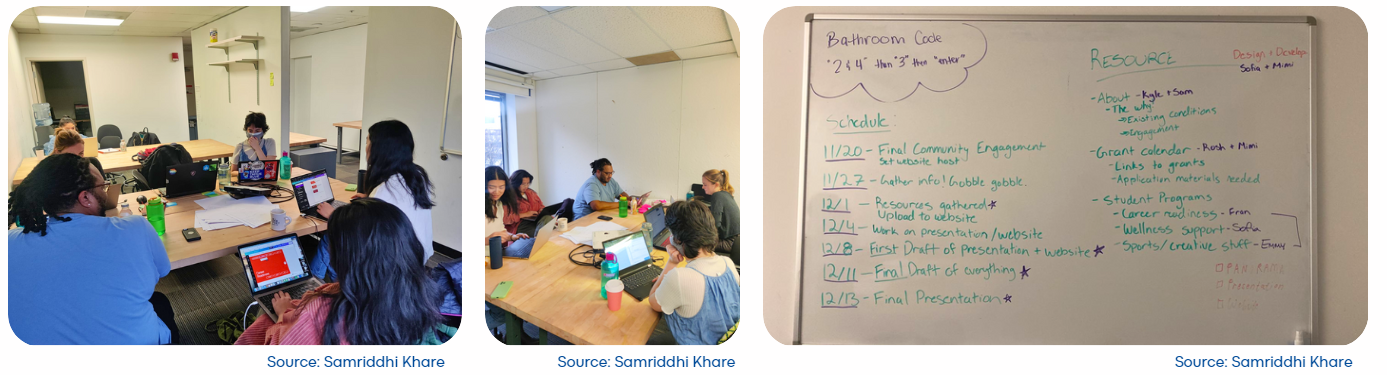 Source: Samriddhi Khare
Source: Samriddhi Khare
Bathroom Code
"2 & 4" then "3" then "enter"
Schedule:
11/20 - Final Community Engagement
Set website host
11/27 - Gather info! Gobble gobble.
12/1 - Resources gathered★
Upload to website
12/4 - Work on presentation/website
12/8 - First Draft of presentation + website ★
12/11 - Final Draft of everything ★
12/13 - Final Presentation ★
RESOURCE
Design + Develop
Sofia + Mimi
- About - Kyle + Sam
- The why
→ Existing conditions
→ Engagement
- Grant calendar - Rosh + Mimi
- Links to grants
- Application materials needed
- Student Programs
- Career readiness - Fran
- Wellness support - Sofia
- Sports/creative stuff - Emmy
Presentation
Source: Samriddhi Khare